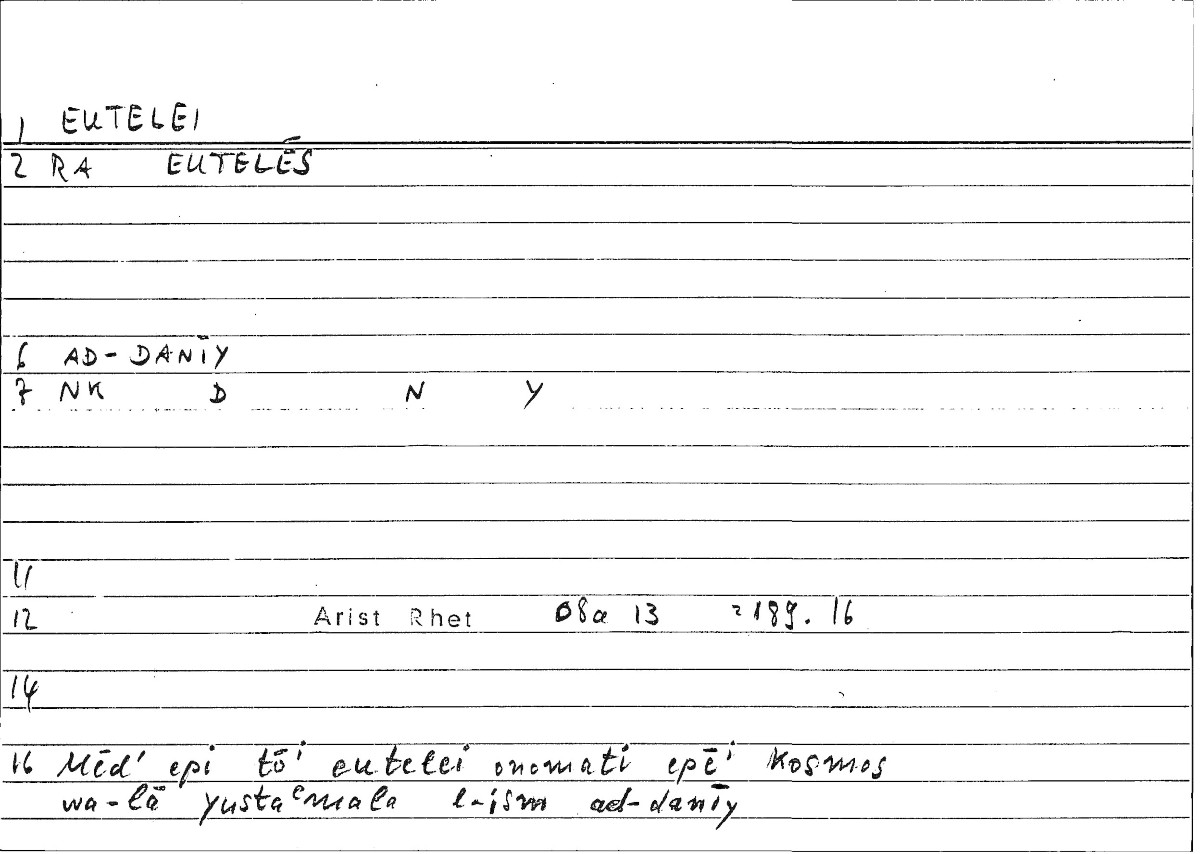 1 EUTELEI
2 RA EUTELĒS
6 AD-DANĪY
7 NK D N Y
11
12 Arist Rhet 08a 13 = 189. 16
14
16 Mēd' epi tōⁱ eutelei onomati epēⁱ kosmos
wa-lā yustaᶜmala l-ism ad-danīy